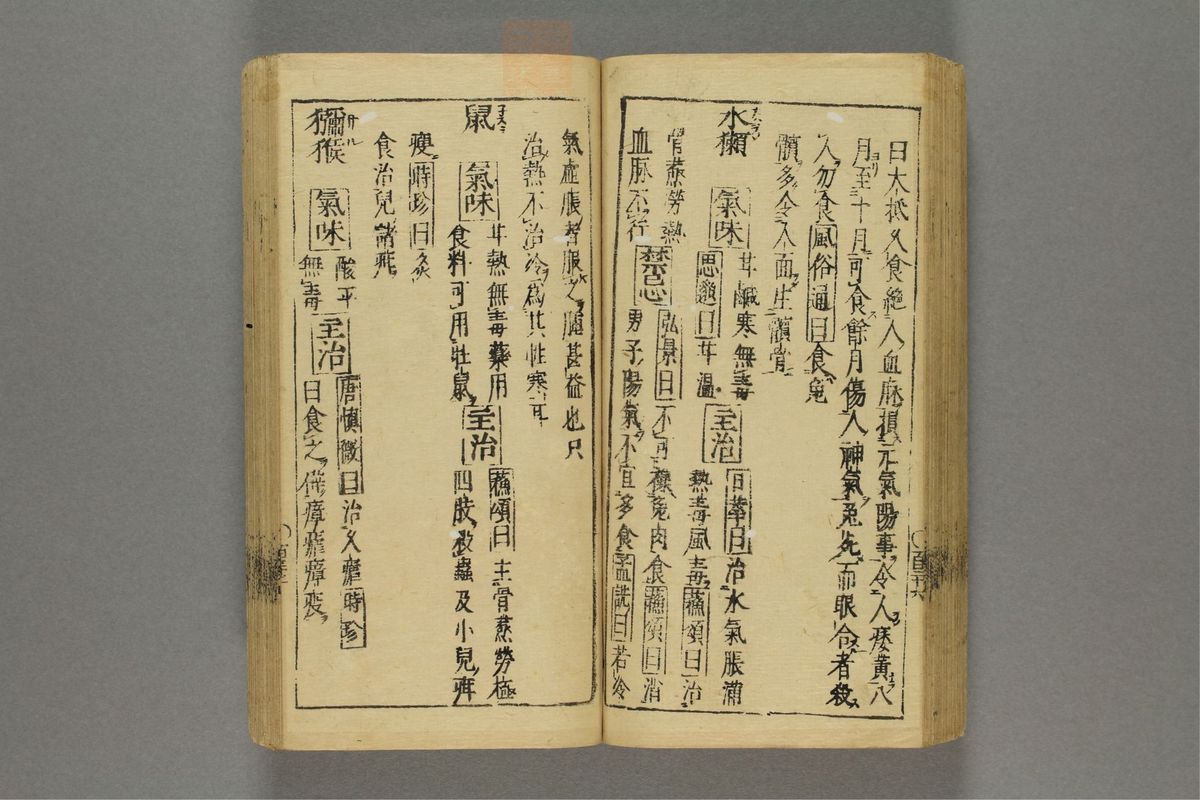 日大抵久食絶人血脉損元氣陽事令人痿黄八
月至十月可食餘月傷人神氣兎死而眼合者殺
人勿食風俗通曰食兎
髕多令人面生髕骨
水獺
氣味
甘鹹寒無毒
思邈曰甘温
主治
日華曰治水氣脹滿
熱毒風毒蘓頌曰治
骨蒸勞熱
血脉不行
禁忌
弘景曰不可襍兎肉食蘓頌曰消
男子陽氣不宜多食孟詵曰若冷
氣虚脹者服之甚益也只
治熱不治冷為其性寒耳
鼠
氣味
甘熱無毒藥用
食料可用牡鼠
主治
蘓頌曰主骨蒸勞極
四肢殺蟲及小兒疳
瘦時珍曰炙
食治兒諸疳
獼猴
サル
氣味
酸平
無毒
主治
唐慎微曰治久瘧時珍
日食之瘴瘧